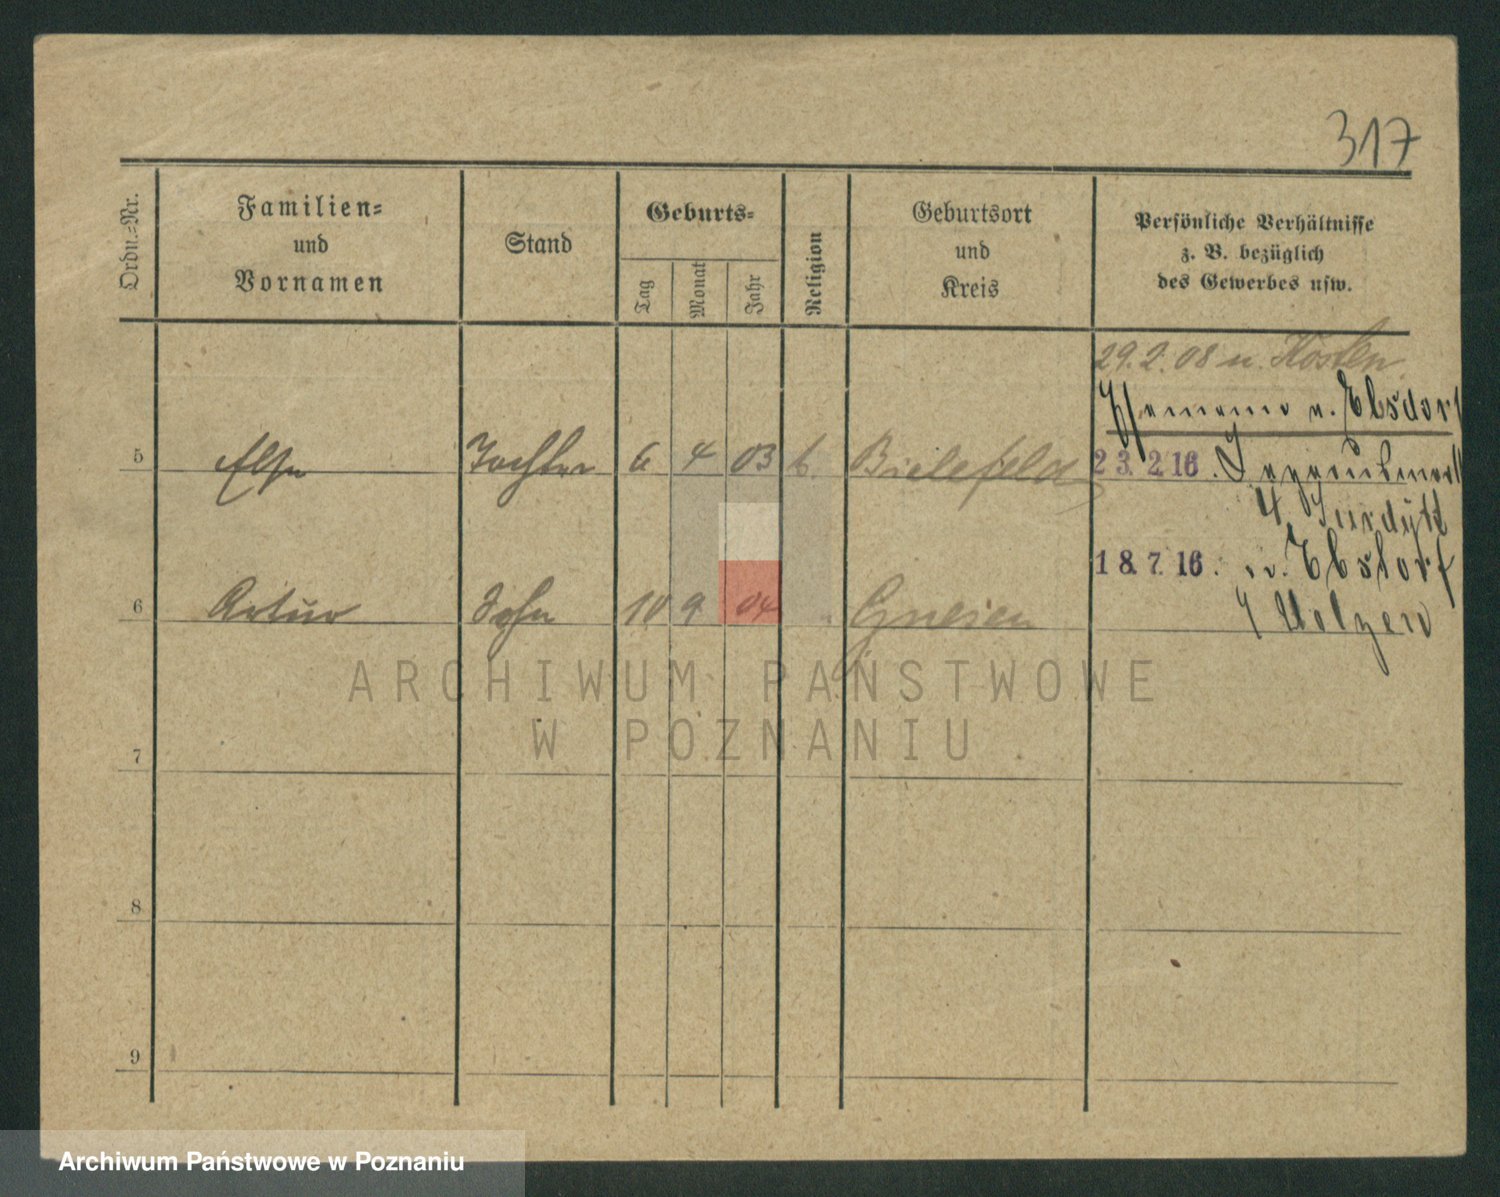 317
Ordn.-Nr.
Familien-
und
Vornamen
Stand
Geburts-
Tag
Monat
Jahr
Religion
Geburtsort
und
Kreis
Persönliche Verhältnisse
z. B. bezüglich
des Gewerbes usw.
29.2.08 n. Kosten.
n. Ebsdorf
5 Else Tochter 6 4 03 Bielefeld 23.2.16.
18.7.16. n. Ebstorf
6 Artur Sohn 10 9 04 Gnesen
/ Uelzen
7
8
9
ARCHIWUM PAŃSTWOWE
W POZNANIU
Archiwum Państwowe w Poznaniu